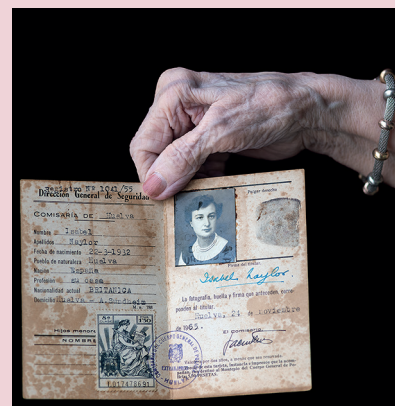 Registro Nº 1041/55
Dirección General de Seguridad
COMISARÍA DE Huelva
Nombre Isabel
Apellidos Naylor
Fecha de nacimiento 22-3-1932
Pueblo de naturaleza Huelva
Nación España
Profesión su casa
Nacionalidad actual BRITANICA
Domicilio Huelva - A.
Hijos menores
NOMBRE
1'50
F017478691
Pulgar derecho
Firma del titular,
Isabel Naylor
La fotografía, huella y firma que anteceden, corres-
ponden al titular.
Huelva, 24 de noviembre
de 1965
El comisario,
HUELVA